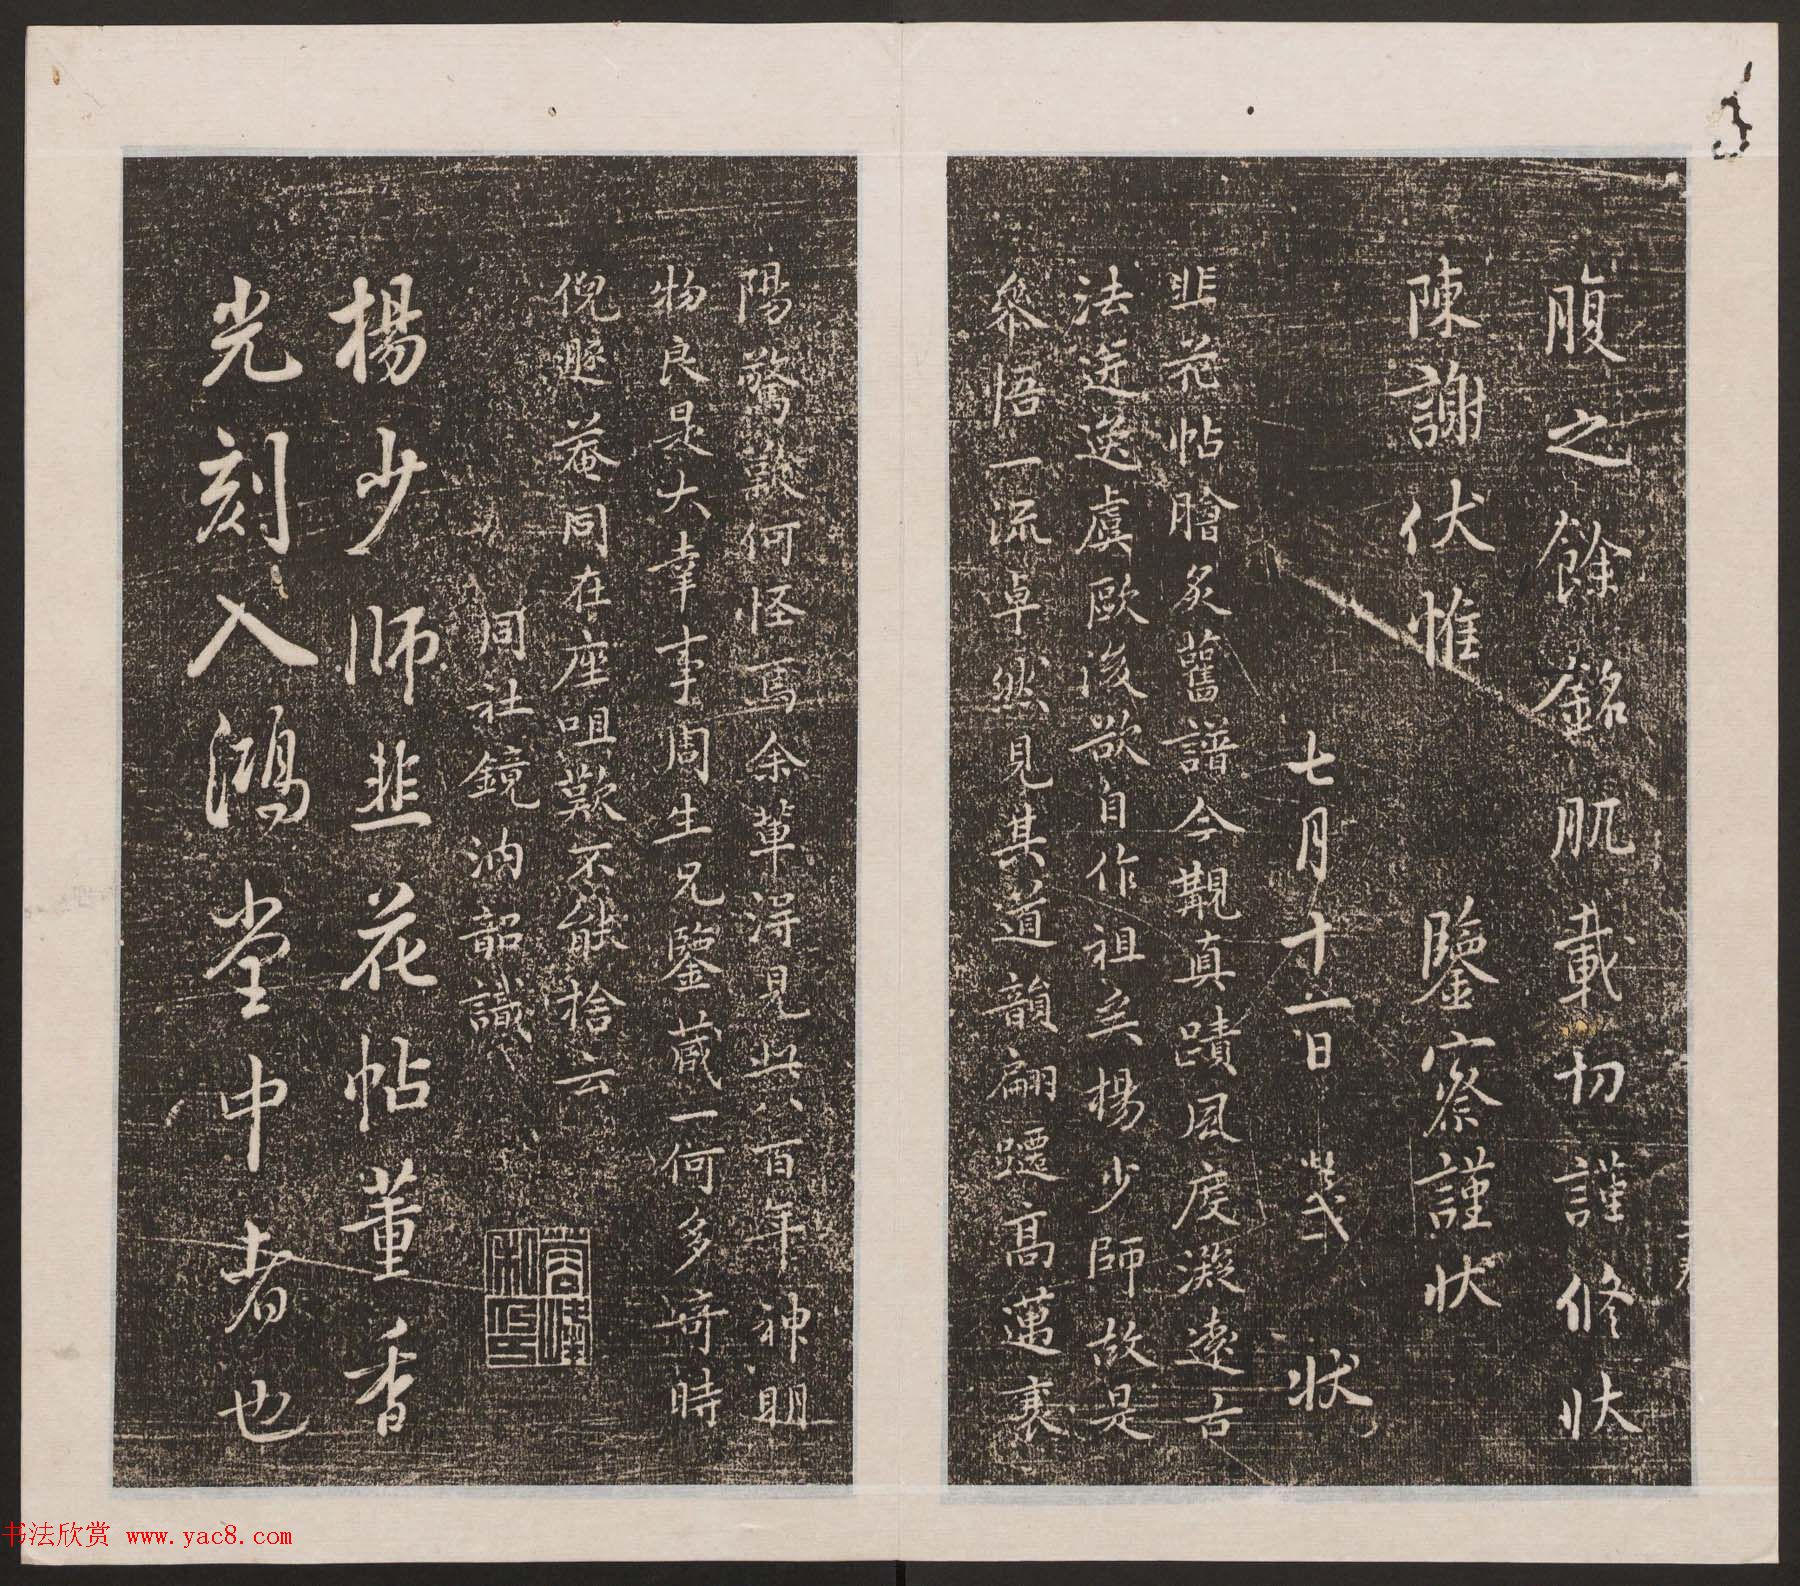 腹之餘銘肌載切謹修狀
陳謝伏惟 鑒察謹狀
七月十一日 狀
韭花帖膾炙舊譜今覯真蹟風度凝遠古
法遒逸虞歐後欲自作祖矣楊少師故是
參悟一流卓然見其道韻翩躚高邁襄
陽驚歎何怪焉余輩得見此八百年神明
物良是大幸事周生兄鑒藏一何多奇時
倪遯菴同在座咀歎不能捨云
同社鏡汭韶識
楊少師韭花帖董香
光刻入鴻堂中者也
书法欣赏 www.yac8.com